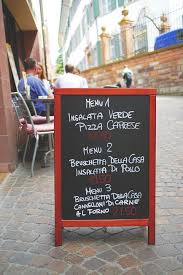 MENU 1
INSALATA VERDE
PIZZA CAPRESE
MENU 2
BRUSCHETTA DELLA CASA
INSALATA DI POLLO
MENU 3
BRUSCHETTA DELLA CASA
CANNELLONI DI CARNE
AL FORNO 21.50